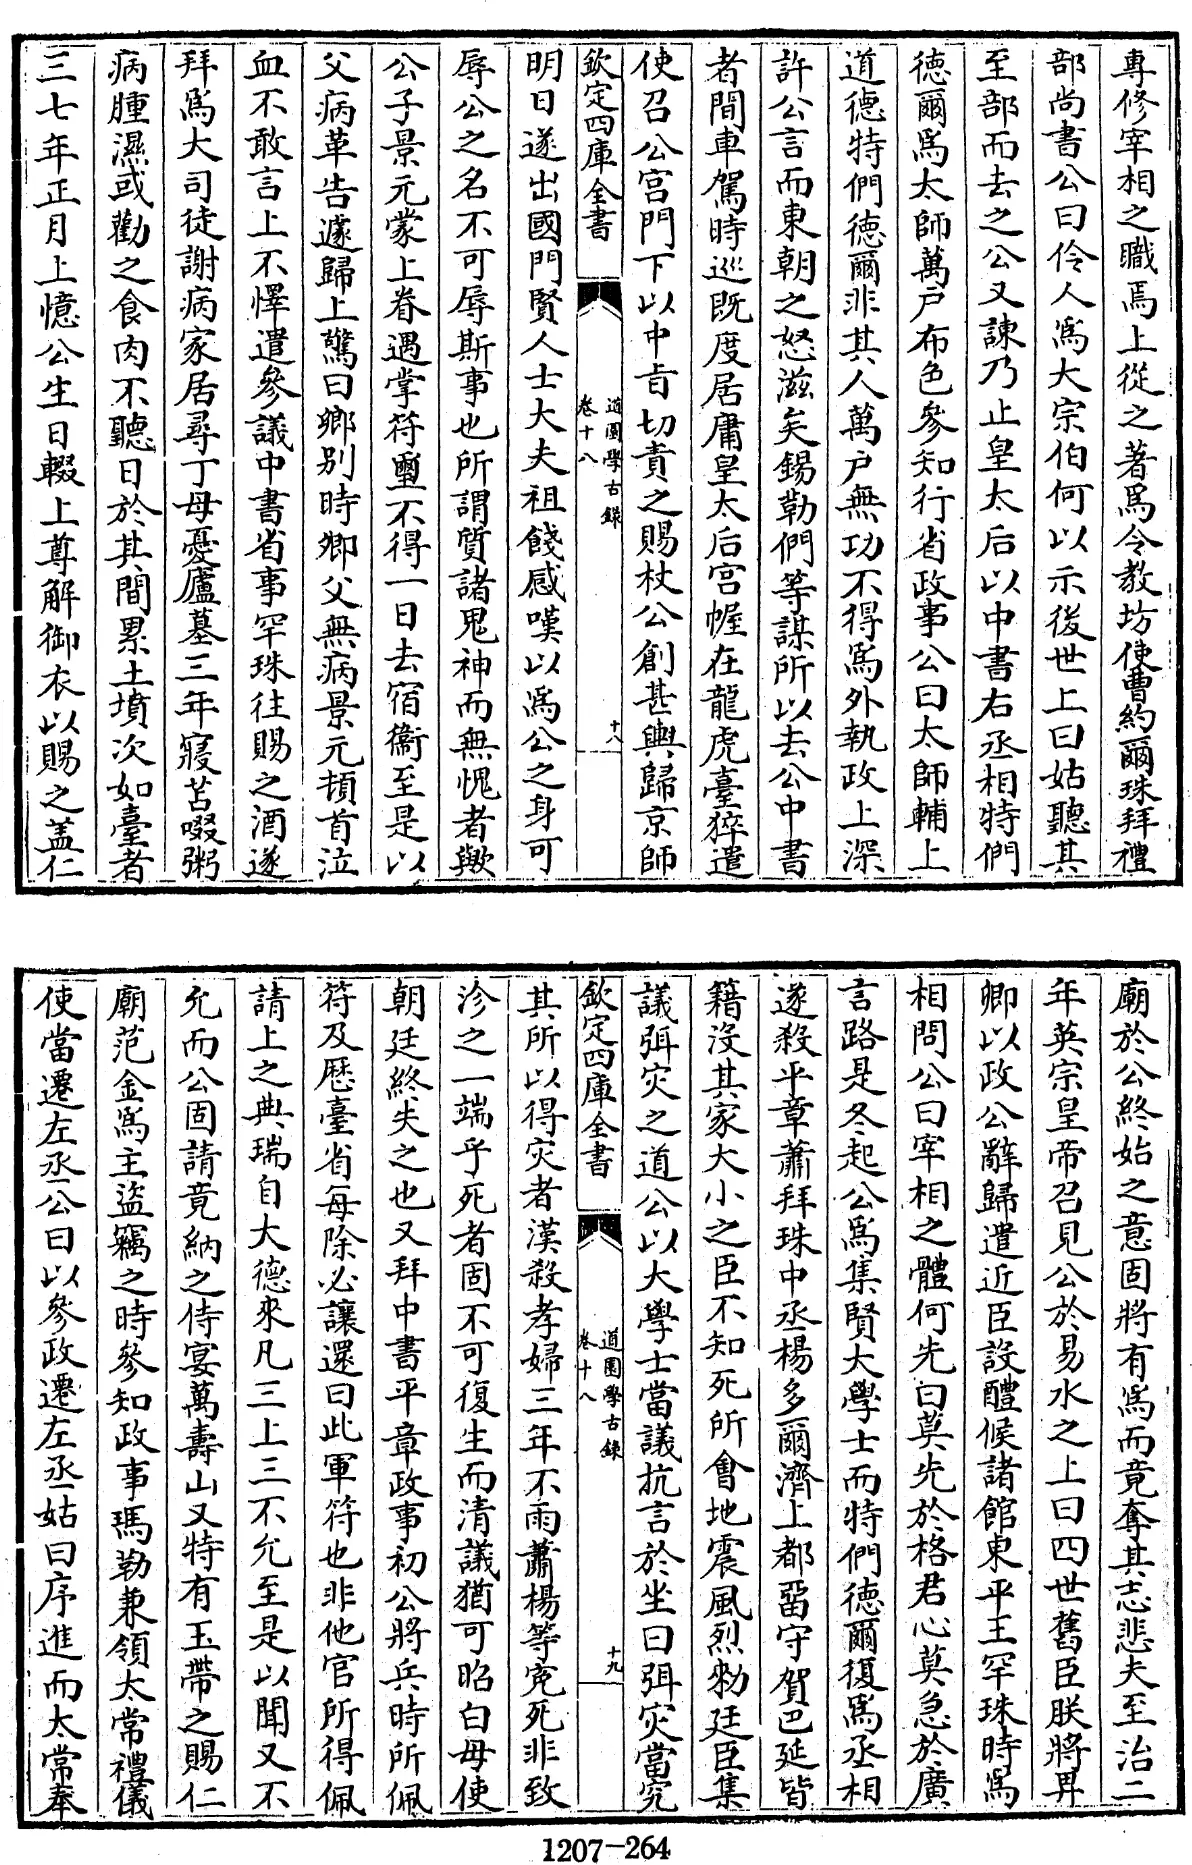 專修宰相之職焉上從之著爲令教坊使曹約爾珠拜禮
部尚書公曰伶人爲大宗伯何以示後世上曰姑聽其
至部而去之公又諫乃止皇太后以中書右丞相特們
德爾爲太師萬户布色參知行省政事公曰太師輔上
道德特們德爾非其人萬户無功不得爲外執政上深
許公言而東朝之怒滋矣錫勒們等謀所以去公中書
者間車駕時巡既度居庸皇太后宫幄在龍虎臺猝遣
使召公宫門下以中㫖切責之賜杖公創甚輿歸京師
欽定四庫全書
道園學古錄
卷十八
十八
明日遂出國門賢人士大夫祖餞感嘆以爲公之身可
辱公之名不可辱斯事也所謂質諸鬼神而無愧者歟
公子景元蒙上眷遇掌符璽不得一日去宿衞至是以
父病革告遽歸上驚曰鄉别時卿父無病景元頓首泣
血不敢言上不懌遣參議中書省事罕珠往賜之酒遂
拜爲大司徒謝病家居尋丁母憂廬墓三年寢苫啜粥
病腫濕或勸之食肉不聽日於其間累土墳次如臺者
三七年正月上憶公生日輟上尊解御衣以賜之盖仁
廟於公終始之意固將有爲而竟奪其志悲夫至治二
年英宗皇帝召見公於易水之上曰四世舊臣朕將畀
卿以政公辭歸遣近臣設醴候諸館東平王罕珠時爲
相問公曰宰相之體何先曰莫先於格君心莫急於廣
言路是冬起公爲集賢大學士而特們德爾復爲丞相
遂殺平章蕭拜珠中丞楊多爾濟上都留守賀巴延皆
籍没其家大小之臣不知死所會地震風烈勑廷臣集
議弭灾之道公以大學士當議抗言於坐曰弭灾當究
欽定四庫全書
道園學古錄
卷十八
十九
其所以得灾者漢殺孝婦三年不雨蕭楊等寃死非致
沴之一端乎死者固不可復生而清議猶可昭白毋使
朝廷終失之也又拜中書平章政事初公將兵時所佩
符及歴臺省每除必讓還曰此軍符也非他官所得佩
請上之典瑞自大德來凡三上三不允至是以聞又不
允而公固請竟納之侍宴萬壽山又特有玉帶之賜仁
廟范金爲主盜竊之時參知政事瑪勒兼領太常禮儀
使當遷左丞公曰以參政遷左丞姑曰序進而太常奉
1207-264